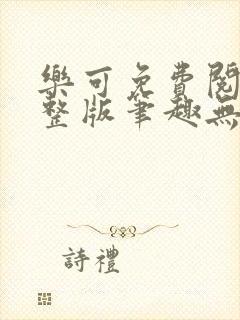 樂可免費閱
整版筆趣無
詩禮